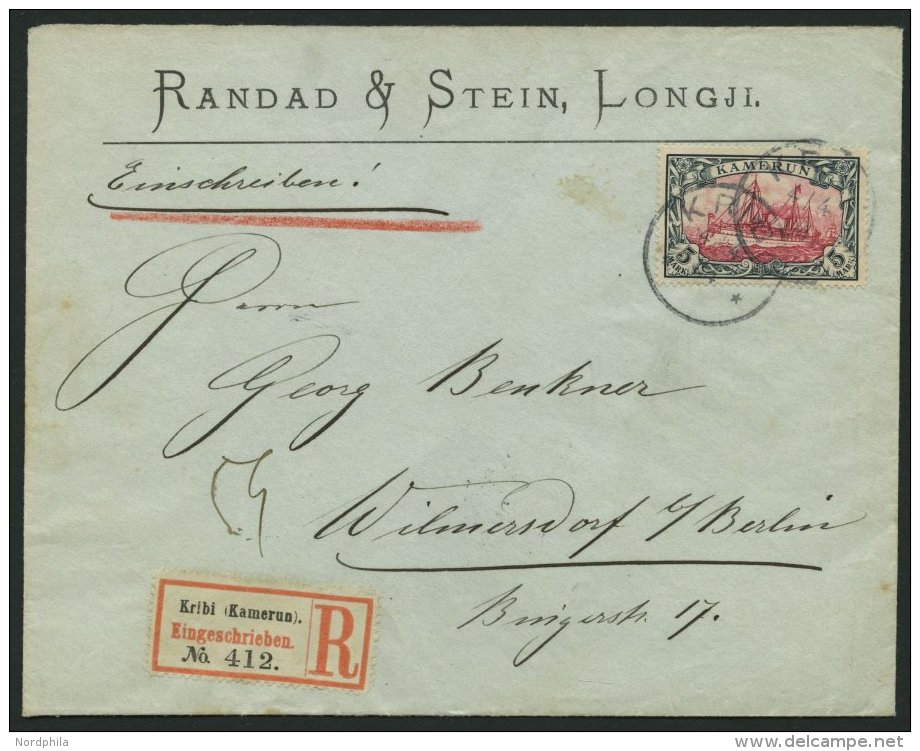 RANDAD & STEIN, LONGJI.
Einschreiben!
KAMERUN
5 5
MARK MARK
KR
KR
4
Herrn
Georg Benkner
Wilmersdorf b/Berlin
Bingerstr. 17.
Kribi (Kamerun).
Eingeschrieben.
No. 412.
R
Nordphila
www.delcampe.net